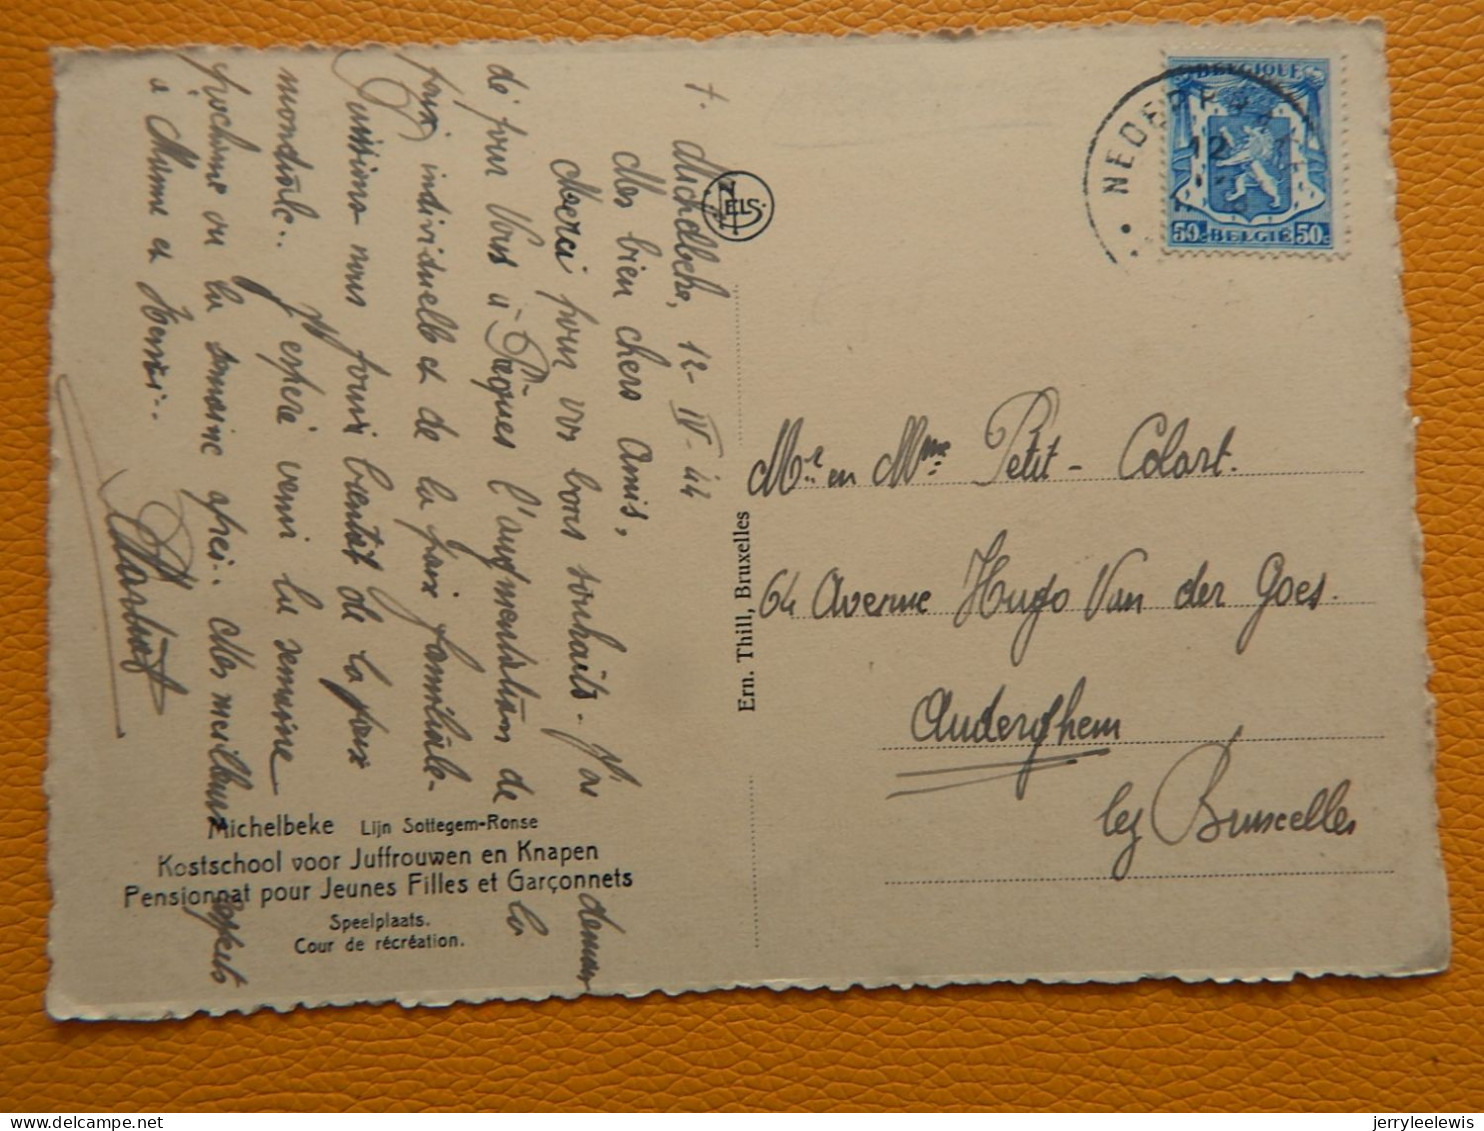 †. Michelbeke, 12-IV-44
Mes bien chers Amis,
Merci pour vos bons souhaits. J'ai deman-
dé pour Vous à Pâques l'augmentation de la
paix individuelle et de la paix familiale.
Puissions nous jouir bientôt de la paix
mondiale.. J'espère venir la semaine
prochaine ou la semaine après.. Mes meilleurs respects
à Mame et
NELS
Michelbeke Lijn Sottegem-Ronse
Kostschool voor Juffrouwen en Knapen
Pensionnat pour Jeunes Filles et Garçonnets
Speelplaats.
Cour de récréation.
Ern. Thill, Bruxelles
BELGIQUE
50c BELGIË 50c
NEDERBR
12
Mr en Mme Petit-Colart.
64 Avenue Hugo Van der Goes.
Auderghem
lez Bruxelles
jerryleelewis